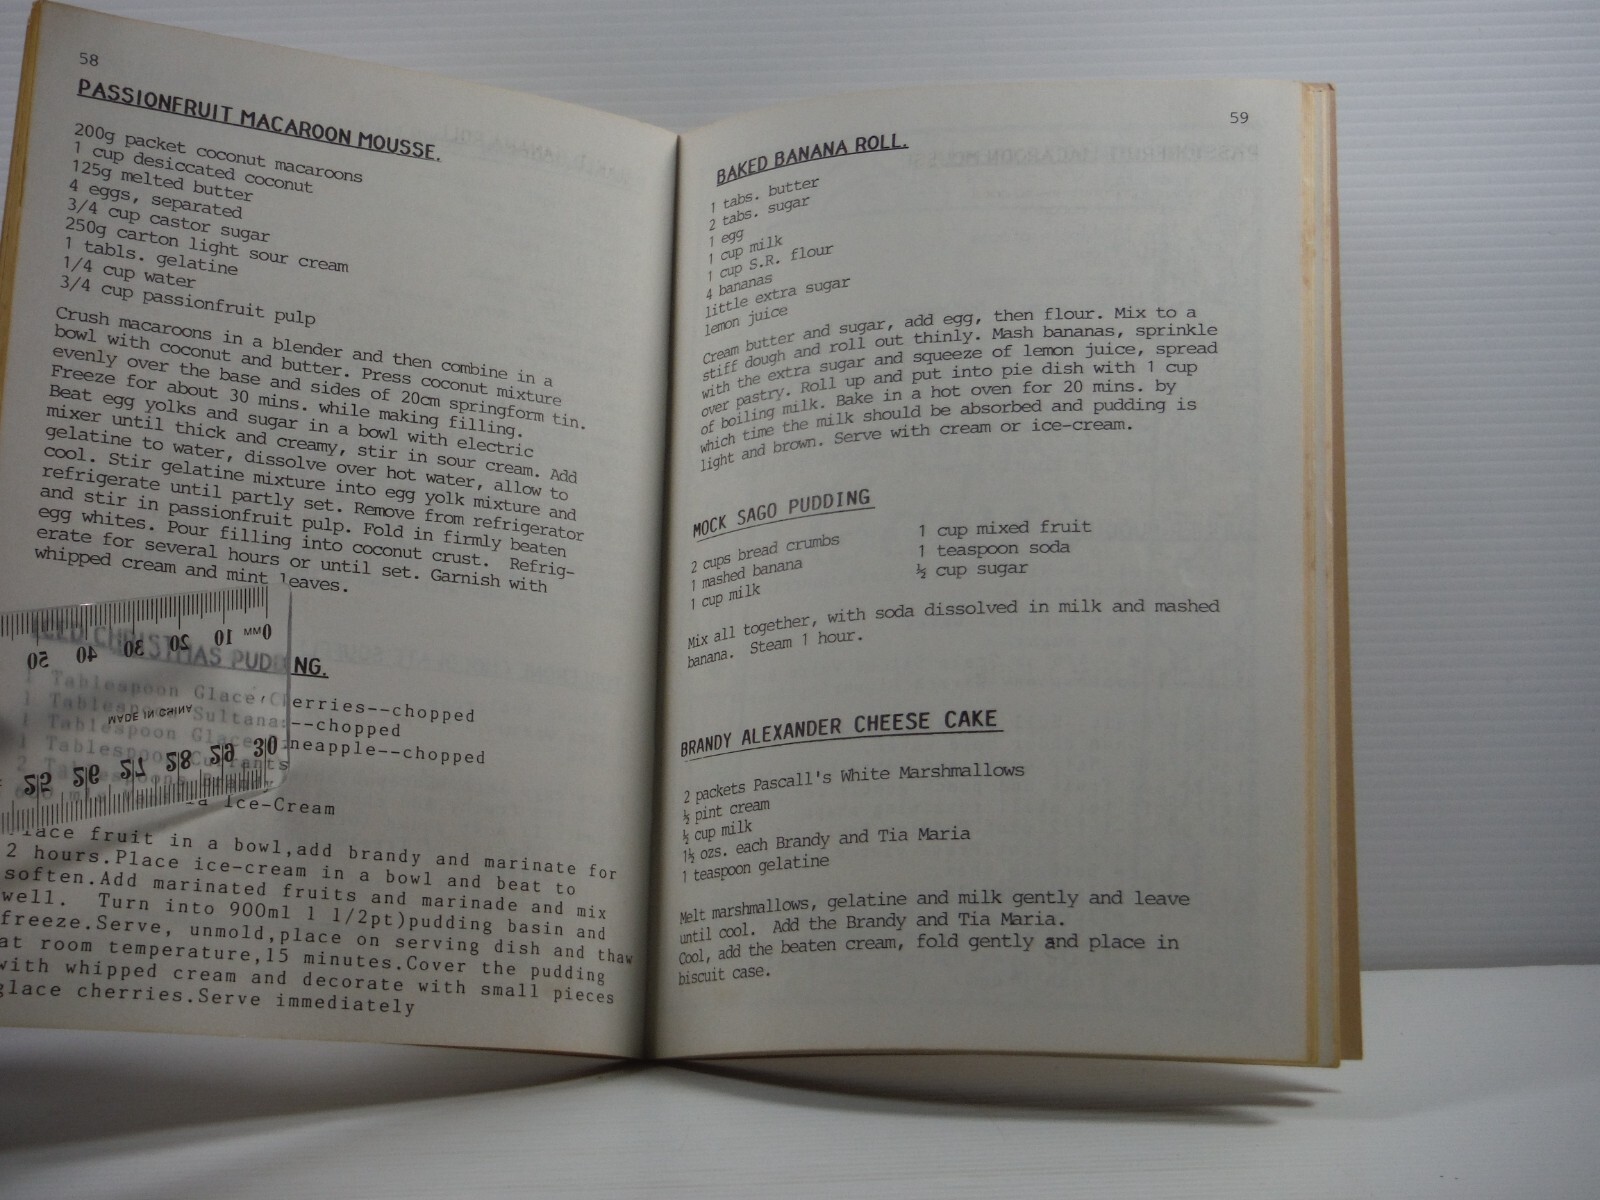 58
PASSIONFRUIT MACAROON MOUSSE.
200g packet coconut macaroons
1 cup desiccated coconut
125g melted butter
4 eggs, separated
3/4 cup castor sugar
250g carton light sour cream
1 tabls. gelatine
1/4 cup water
3/4 cup passionfruit pulp
Crush macaroons in a blender and then combine in a
bowl with coconut and butter. Press coconut mixture
evenly over the base and sides of 20cm springform tin.
Freeze for about 30 mins. while making filling.
Beat egg yolks and sugar in a bowl with electric
mixer until thick and creamy, stir in sour cream. Add
gelatine to water, dissolve over hot water, allow to
cool. Stir gelatine mixture into egg yolk mixture and
refrigerate until partly set. Remove from refrigerator
and stir in passionfruit pulp. Fold in firmly beaten
egg whites. Pour filling into coconut crust. Refrig-
erate for several hours or until set. Garnish with
whipped cream and mint leaves.
ICED CHRISTMAS PUDDING.
1 Tablespoon Glace Cherries--chopped
1 Tablespoon Sultanas--chopped
1 Tablespoon Glace Pineapple--chopped
1 Tablespoon Currants
2 Tablespoons
Ice-Cream
Place fruit in a bowl,add brandy and marinate for
2 hours.Place ice-cream in a bowl and beat to
soften.Add marinated fruits and marinade and mix
well. Turn into 900ml 1 1/2pt)pudding basin and
freeze.Serve, unmold,place on serving dish and thaw
at room temperature,15 minutes.Cover the pudding
with whipped cream and decorate with small pieces
glace cherries.Serve immediately
0MM 10 20 30 40 50
MADE IN CHINA
25 26 27 28 29 30
59
BAKED BANANA ROLL.
1 tabs. butter
2 tabs. sugar
1 egg
1 cup milk
1 cup S.R. flour
4 bananas
little extra sugar
lemon juice
Cream butter and sugar, add egg, then flour. Mix to a
stiff dough and roll out thinly. Mash bananas, sprinkle
with the extra sugar and squeeze of lemon juice, spread
over pastry. Roll up and put into pie dish with 1 cup
of boiling milk. Bake in a hot oven for 20 mins. by
which time the milk should be absorbed and pudding is
light and brown. Serve with cream or ice-cream.
MOCK SAGO PUDDING
2 cups bread crumbs
1 mashed banana
1 cup milk
1 cup mixed fruit
1 teaspoon soda
½ cup sugar
Mix all together, with soda dissolved in milk and mashed
banana. Steam 1 hour.
BRANDY ALEXANDER CHEESE CAKE
2 packets Pascall's White Marshmallows
½ pint cream
½ cup milk
1½ ozs. each Brandy and Tia Maria
1 teaspoon gelatine
Melt marshmallows, gelatine and milk gently and leave
until cool. Add the Brandy and Tia Maria.
Cool, add the beaten cream, fold gently and place in
biscuit case.